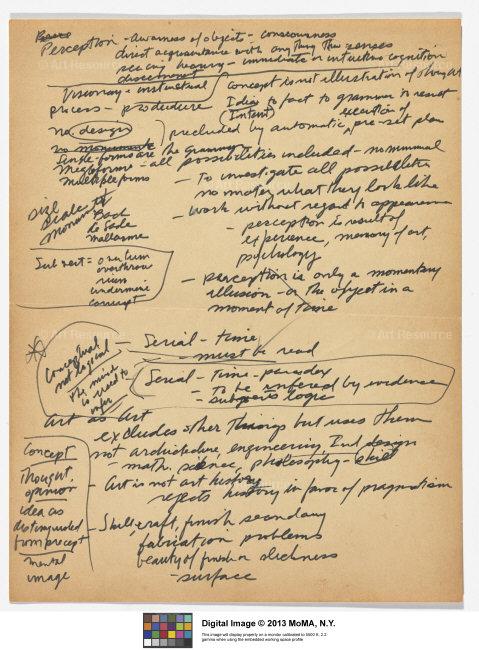 Perception - awareness of objects - consciousness
direct acquaintance with anything thru senses
seeing hearing - immediate or intuitive cognition
discernment
Visionary - instinctual
concept is not illustration of thought
process - procedure
Idea to fact to grammar to result
(Intent) execution of
no design
precluded by automatic, pre-set plan
no monuments
Single forms are the grammar
Megaforms - all possibilities included - no minimal
Multiple forms
- To investigate all possibilities
no matter what they look like
size
Scale
monument
Bach
de Sade
Mallarme
- work without regard to appearance
- perception is result of
experience, memory of art,
psychology
Subvert = overturn
overthrow
ruin
undermine
corrupt
- perception is only a momentary
illusion - or the object in a
moment of time
Conceptual
not logical
The mind
is used to
infer
- Serial - time
- must be read
Serial - time - paradox
- to be inferred by evidence
- subverts logic
Art as Art
excludes other things but uses them
not architecture, engineering Ind design
- math, science, philosophy - skill
Concept
Thought,
opinion
idea as
distinguished
from precept
mental
image
- Art is not art history
rejects history in favor of pragmatism
- Skill, craft, finish secondary
fabrication problems
beauty of finish or slickness
- surface
Art Resource
Digital Image © 2013 MoMA, N.Y.
This image will display properly on a monitor calibrated to 6500 K, 2.2
gamma when using the embedded working space profile